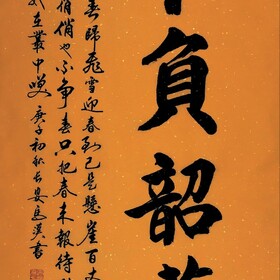 負韶
春歸飛雪迎春到已是懸崖百丈
俏俏也不争春只把春来報待
在叢中笑 庚子初秋